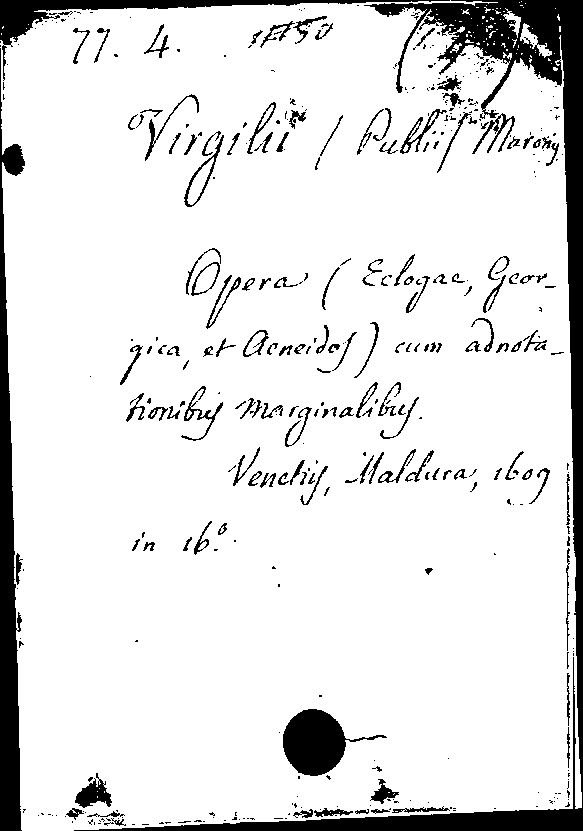 77. 4.
Virgilii / Publii / Maronis
Opera ( Eclogae, Geor-
gica, et Aeneidos ) cum adnota-
tionibus marginalibus.
Venetiis, Maldura, 1609
in 16.º